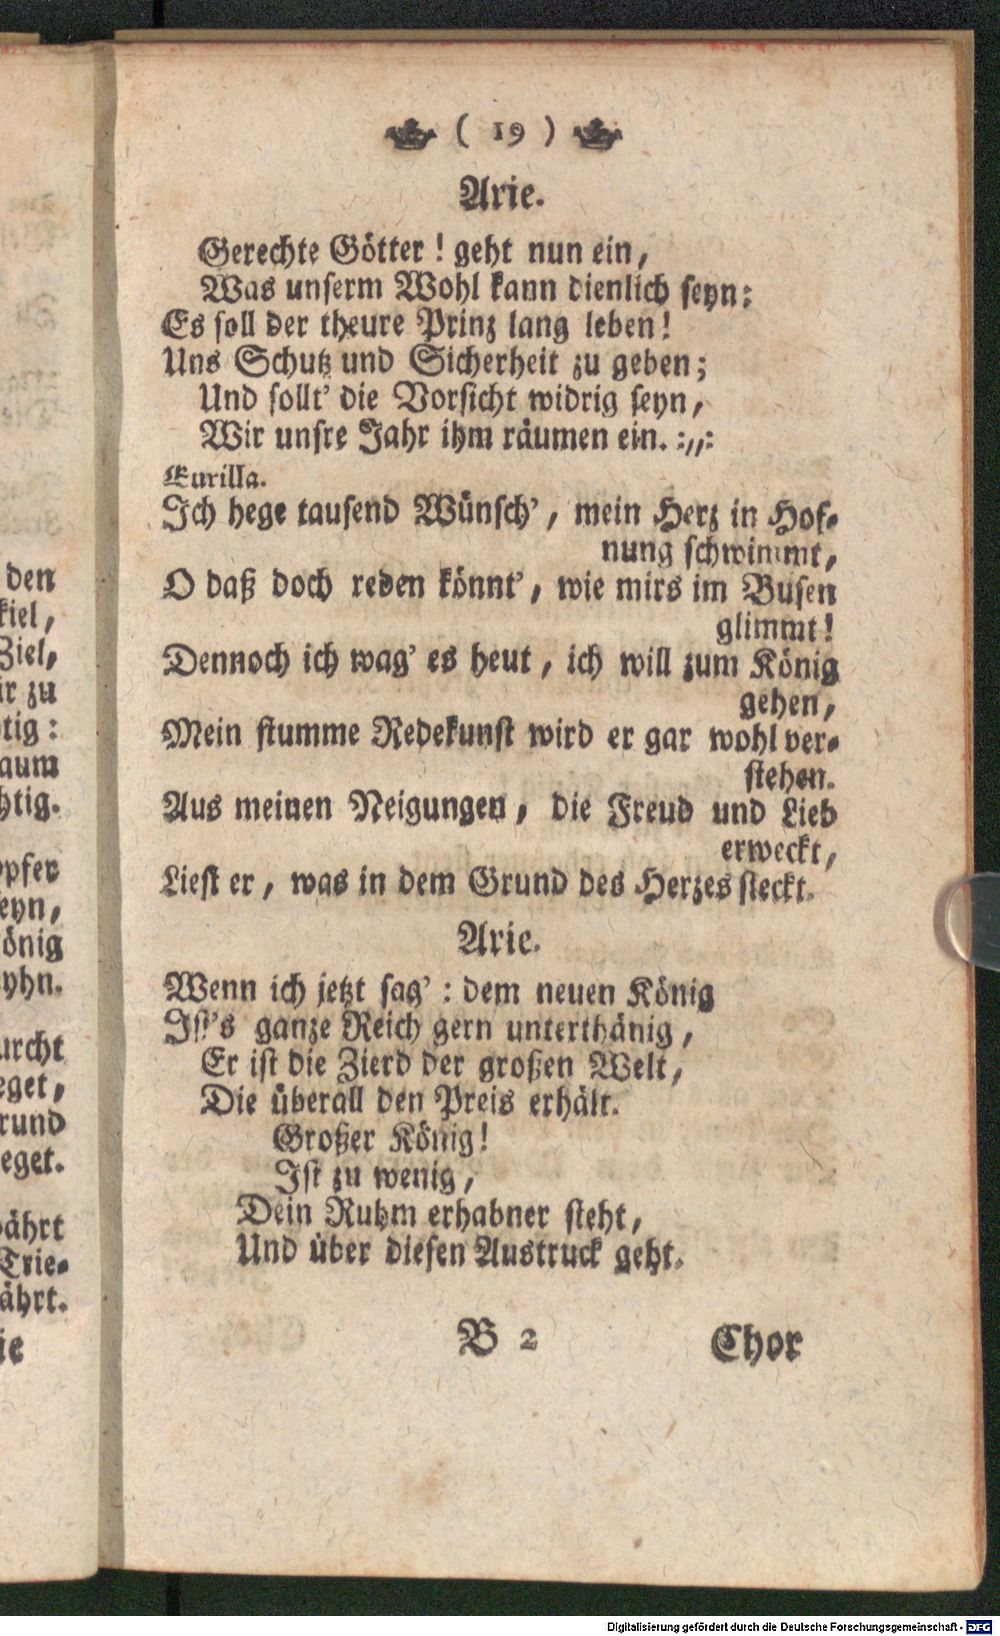 ( 19 )
Arie.
Gerechte Götter! geht nun ein,
Was unserm Wohl kann dienlich seyn:
Es soll der theure Prinz lang leben!
Uns Schutz und Sicherheit zu geben;
Und sollt' die Vorsicht widrig seyn,
Wir unsre Jahr ihm räumen ein. :,,:
Eurilla.
Ich hege tausend Wünsch', mein Herz in Hof-
nung schwimmt,
O daß doch reden könnt', wie mirs im Busen
glimmt!
Dennoch ich wag' es heut, ich will zum König
gehen,
Mein stumme Redekunst wird er gar wohl ver-
stehen.
Aus meinen Neigungen, die Freud und Lieb
erweckt,
Liest er, was in dem Grund des Herzes steckt.
Arie.
Wenn ich jetzt sag': dem neuen König
Ist's ganze Reich gern unterthänig,
Er ist die Zierd der großen Welt,
Die überall den Preis erhält.
Großer König!
Ist zu wenig,
Dein Ruhm erhabner steht,
Und über diesen Austruck geht.
B 2 Chor
den
kiel,
Ziel,
ir zu
tig:
aum
htig.
pfer
eyn,
önig
yhn.
urcht
eget,
rund
eget.
ährt
Trie-
ährt.
ie
Digitalisierung gefördert durch die Deutsche Forschungsgemeinschaft - DFG